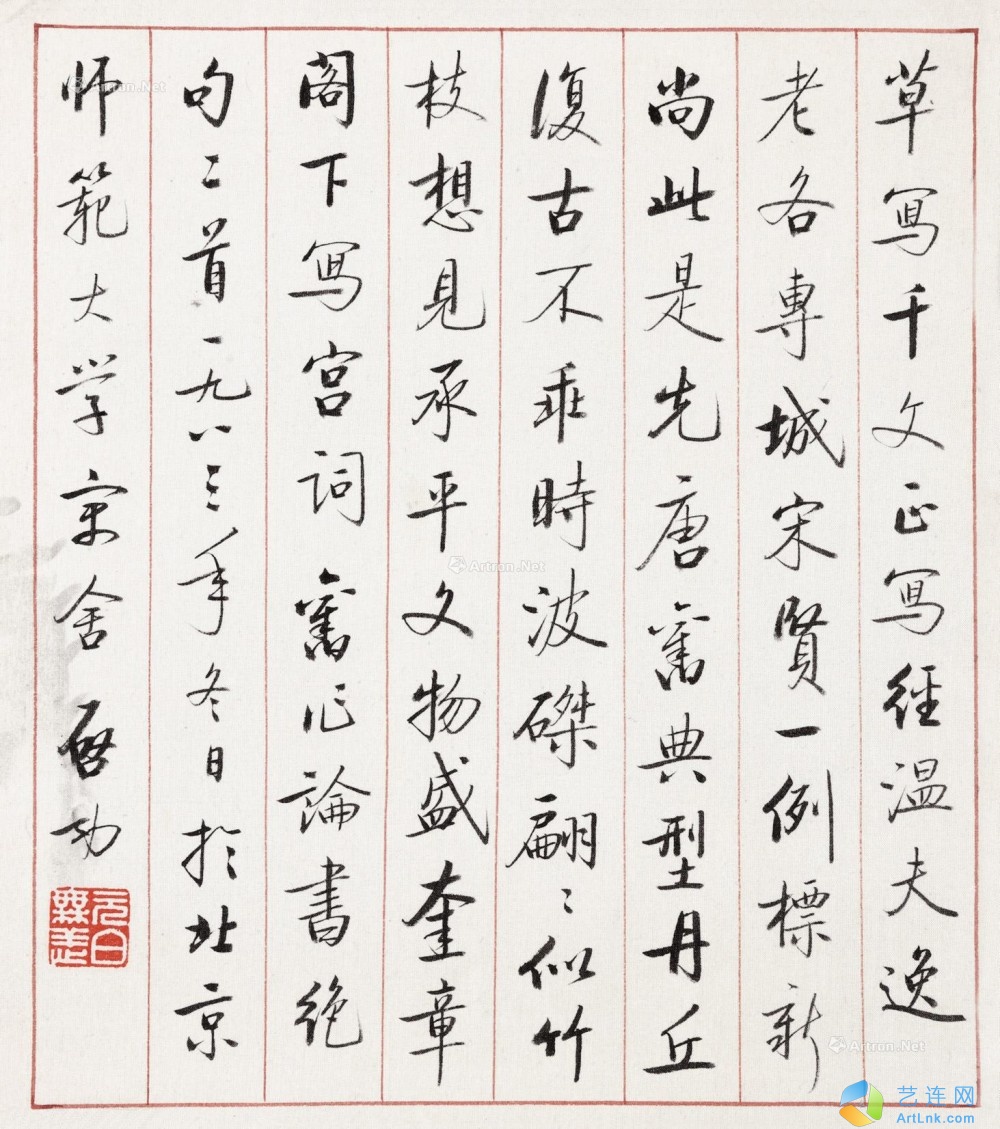 草寫千文正寫經温夫逸
老各專城宋賢一例標新
尚此是先唐舊典型丹丘
復古不乖時波磔翩〻似竹
枝想見承平文物盛奎章
閣下寫宫詞舊作論書絶
句二首一九八三年冬日於北京
师範大学宿舍 啓功
元白無恙
Artron.Net
Artron.Net
Artron.Net
艺连网
ArtLnk.com